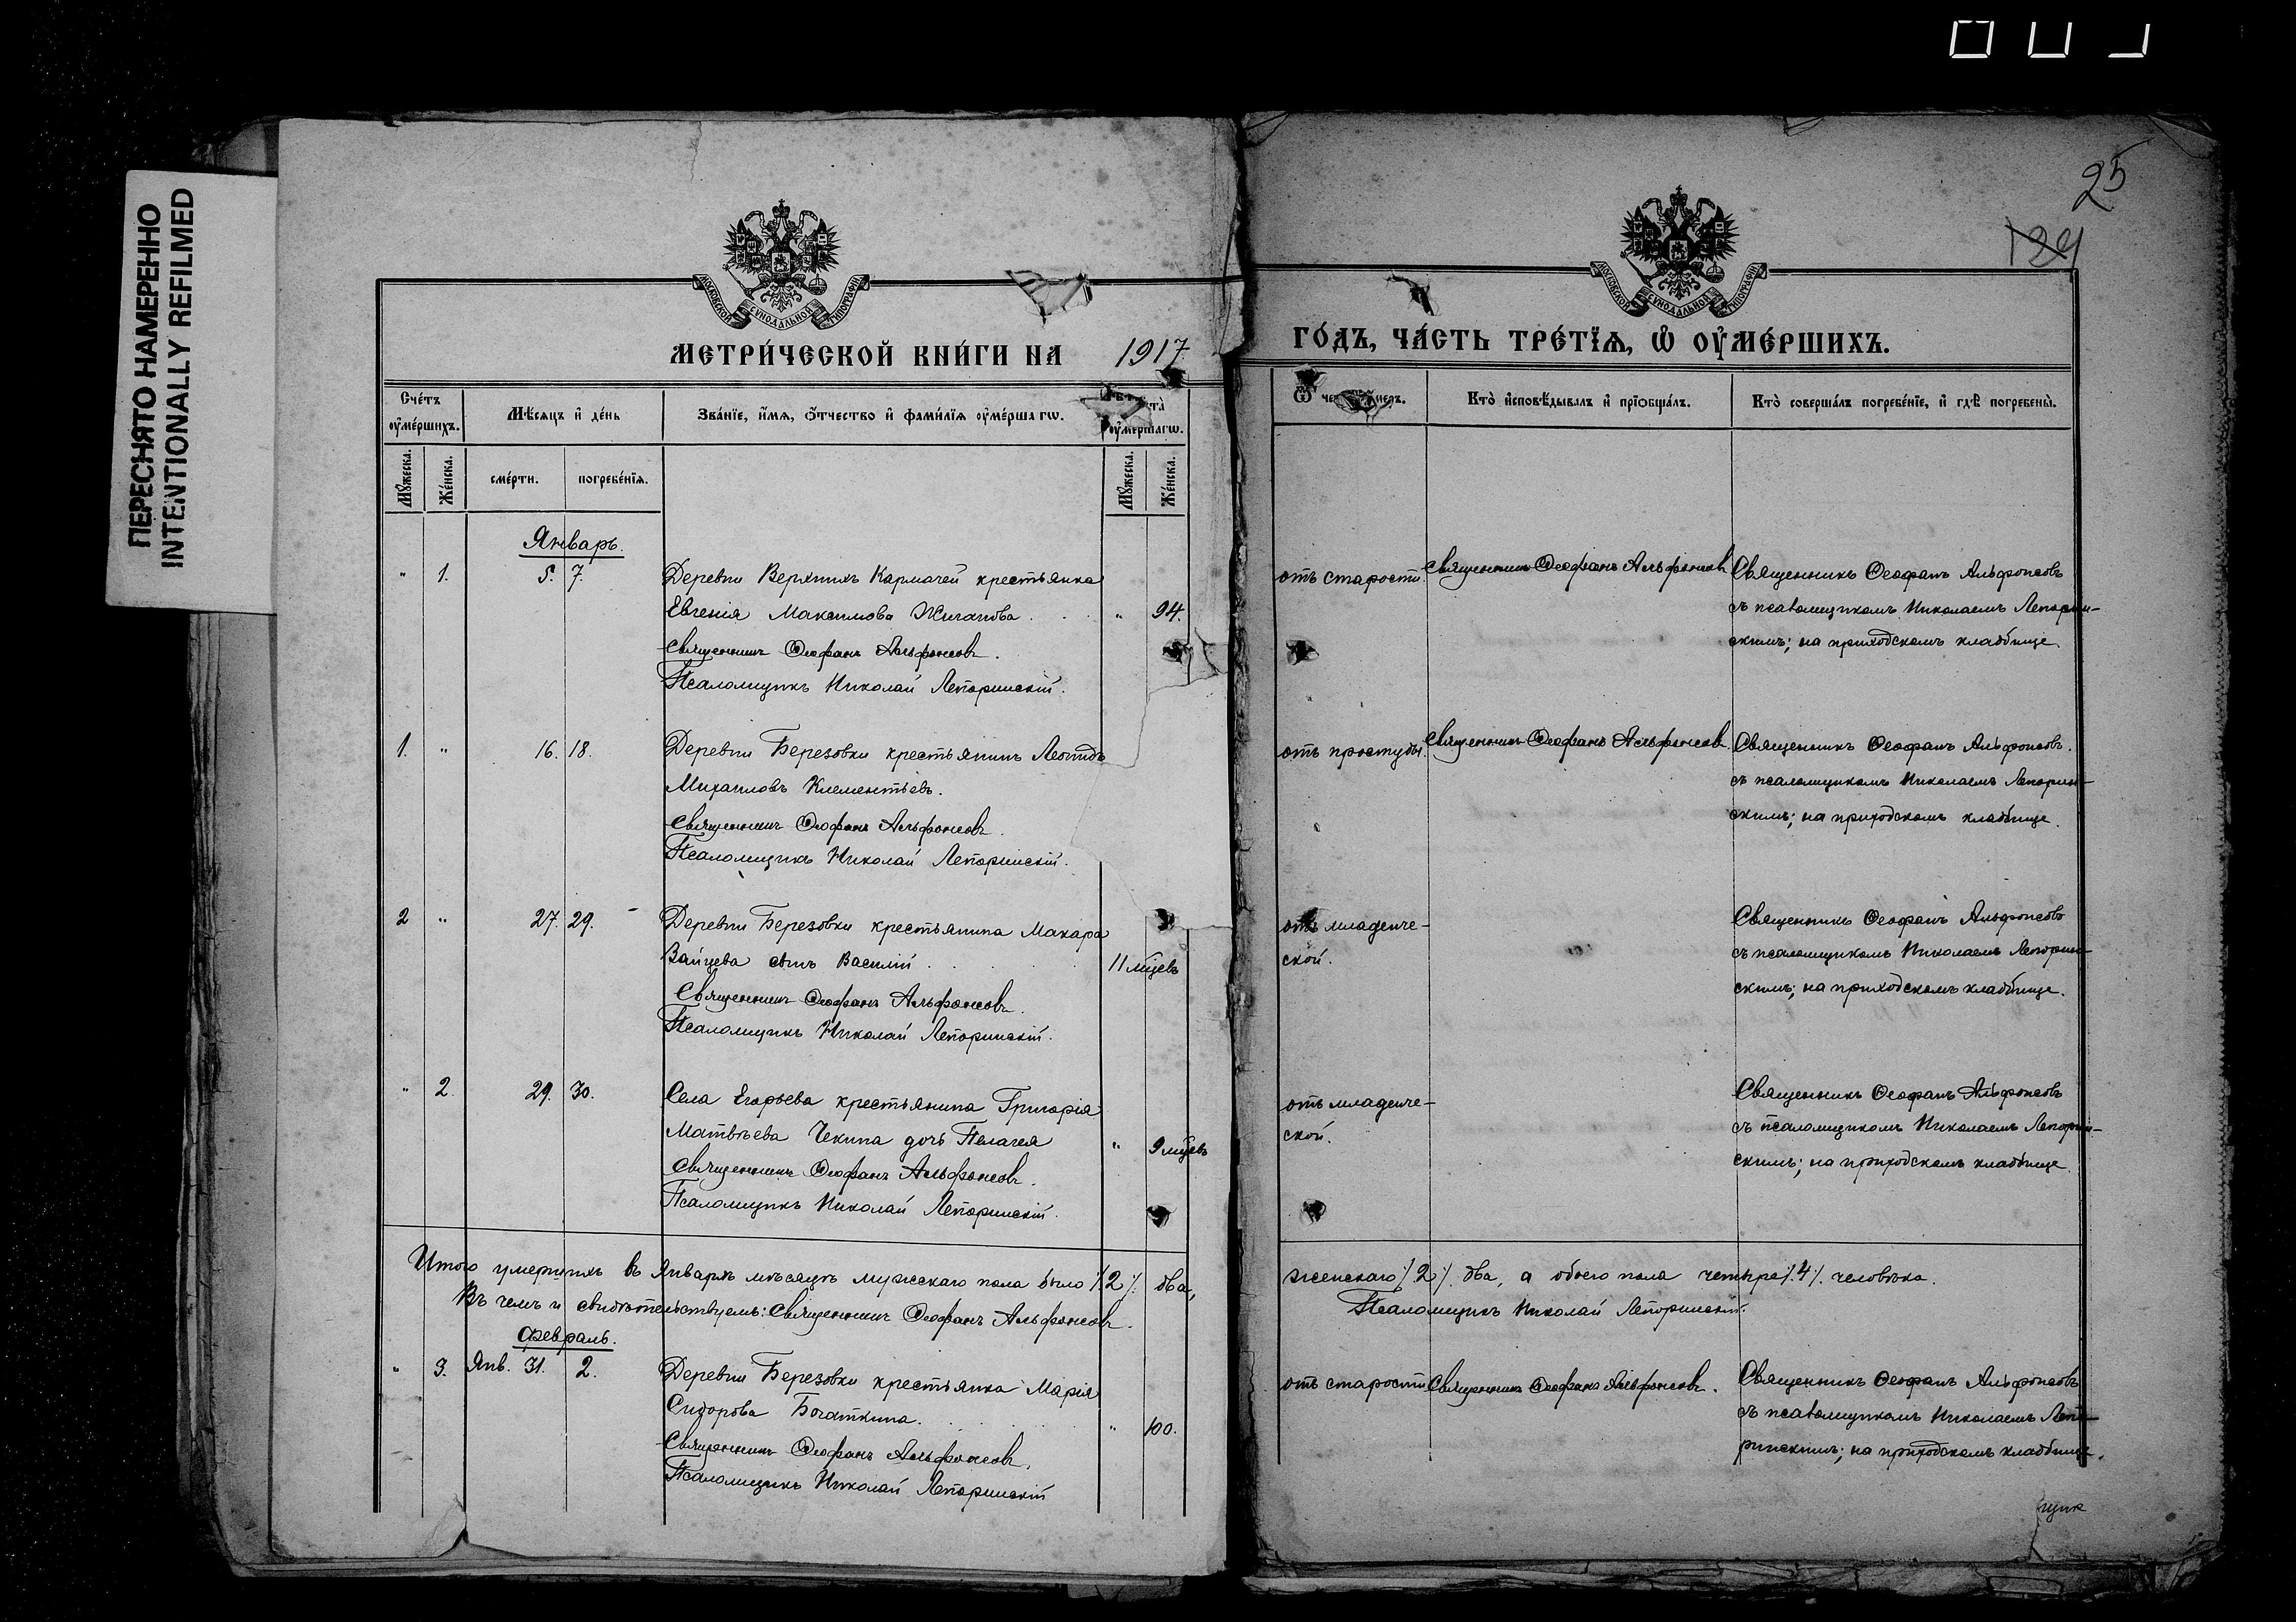 ПЕРЕСНЯТО НАМЕРЕННО
INTENTIONALLY REFILMED
25
124
МОСКОВСКОЙ СѴНОДАЛЬНОЙ ТИПОГРАФІИ
МОСКОВСКОЙ СѴНОДАЛЬНОЙ ТИПОГРАФІИ
МЕТРИ́ЧЕСКОЙ КНИ́ГИ НА 1917
ГО́ДЪ, ЧА́СТЬ ТРЕ́ТЇѦ, Ѡ҆ ОУ҆МЕ́РШИХЪ.
Сче́тъ оу҆ме́ршихъ.
Мѣ́сѧцъ и҆ де́нь
Зва́нїе, и҆́мѧ, ѻ҆́тчество и҆ фами́лїѧ оу҆ме́ршагѡ.
оу҆ме́ршагѡ.
Кто̀ и҆сповѣ́дывалъ и҆ прїѻбща́лъ.
Кто̀ соверша́лъ погребе́нїе, и҆ гдѣ̀ погребены̀.
Мꙋ́жеска.
Же́нска.
сме́рти.
погребе́нїѧ.
Мꙋ́жеска.
Же́нска.
Январь.
" 1. 5. 7. Деревни Верхнихъ Кармачей крестьянка
Евгенія Максимова Жиганова . . . " 94.
Священникъ Ѳеофанъ Альфонсовъ.
Псаломщикъ Николай Лепоринскій.
отъ старости. Священникъ Ѳеофанъ Альфонсовъ
Священникъ Ѳеофанъ Альфонсовъ
съ псаломщикомъ Николаемъ Лепорин-
скимъ; на приходскомъ кладбище.
1. " 16. 18. Деревни Березовки крестьянинъ Леонидъ
Михаиловъ Клементьевъ.
Священникъ Ѳеофанъ Альфонсовъ.
Псаломщикъ Николай Лепоринскій.
отъ простуды. Священникъ Ѳеофанъ Альфонсовъ
Священникъ Ѳеофанъ Альфонсовъ.
съ псаломщикомъ Николаемъ Лепорин-
скимъ; на приходскомъ кладбище.
2 " 27. 29. Деревни Березовки крестьянина Макара
Зайцева сынъ Василій . . . 11 мцевъ
Священникъ Ѳеофанъ Альфонсовъ.
Псаломщикъ Николай Лепоринскій.
отъ младенче-
ской.
Священникъ Ѳеофанъ Альфонсовъ
съ псаломщикомъ Николаемъ Лепорин-
скимъ; на приходскомъ кладбище.
" 2. 29. 30. Села Егорьева крестьянина Григорія
Матвѣева Чекина дочь Пелагея " 9 мцевъ
Священникъ Ѳеофанъ Альфонсовъ.
Псаломщикъ Николай Лепоринскій.
отъ младенче-
ской.
Священникъ Ѳеофанъ Альфонсовъ
съ псаломщикомъ Николаемъ Лепорин-
скимъ; на приходскомъ кладбище.
Итого умершихъ въ Январѣ мѣсяцѣ мужскаго пола было /.2./. два,
женскаго /.2./. два, а обоего пола четыре /.4./. человѣка.
Въ чемъ и свидѣтельствуемъ: Священникъ Ѳеофанъ Альфонсовъ.
Псаломщикъ Николай Лепоринскій.
Февраль.
" 3. Янв. 31. 2. Деревни Березовки крестьянка Марія
Сидорова Богаткина. . . . " 100.
Священникъ Ѳеофанъ Альфонсовъ.
Псаломщикъ Николай Лепоринскій
отъ старости Священникъ Ѳеофанъ Альфонсовъ.
Священникъ Ѳеофанъ Альфонсовъ
съ псаломщикомъ Николаемъ Лепо-
ринскимъ; на приходскомъ кладбище.